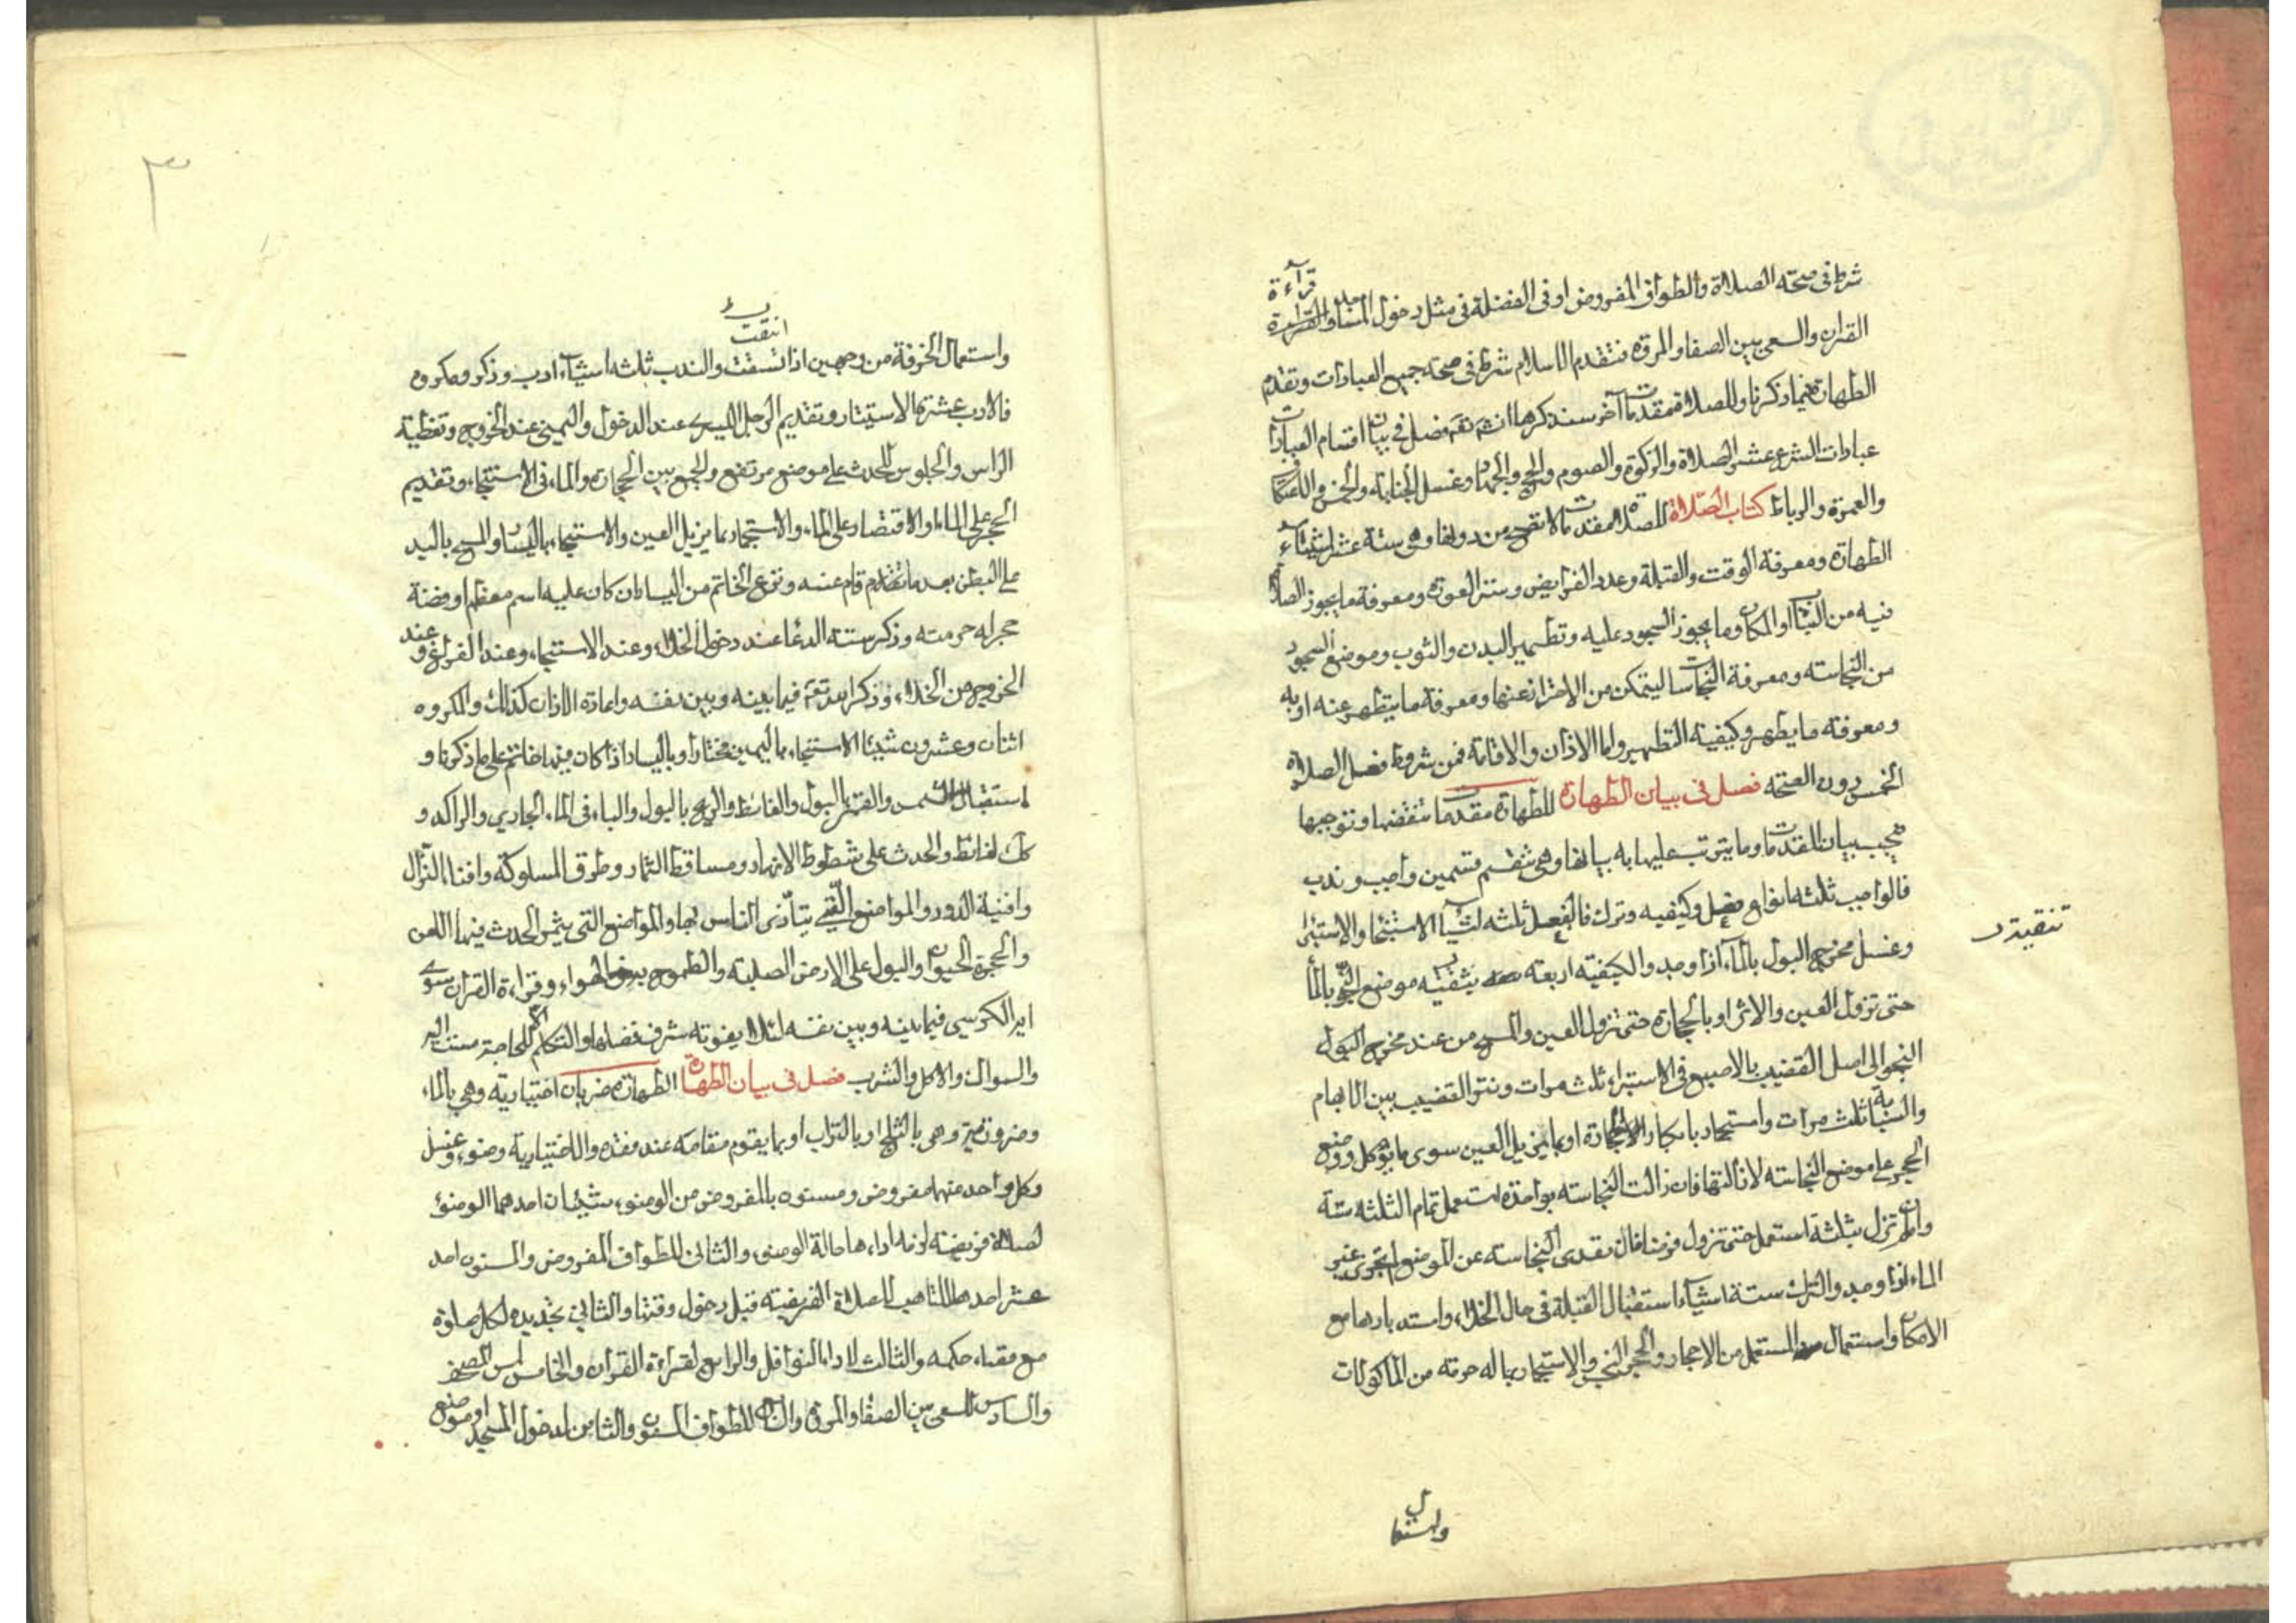 شرط فى صحة الصلاة والطواف المفروض او فى الفضلة فى مثل دخول المساجد و قرآءة
القران والسعى بين الصفا والمروة فتقدم الاسلام شرط فى صحة جميع العبادات وتقدم
الطهارة فيما ذكرنا وللصلاة مقدمات آخر سنذكرها انشه تعه فصل فى بيان اقسام العبادات
عبادات الشرع عشر الصلاة والزكوة والصوم والحج والجهاد وغسل الجنابة والخمس والاعتكاف
والعمرة والرباط كتاب الصّلاة للصلاة مقدمات لا تصح من دونها وهى ستة عشر اشيآء
الطهارة ومعرفة الوقت والقبلة وعدد الفرايض وستر العورة ومعرفة ما يجوز الصلاة
فيه من الثياب والمكان وما يجوز السجود عليه وتطهير البدن والثوب وموضع السجود
من النجاسة ومعرفة النجاسات ليتمكن من الاحتراز عنها ومعرفة ما يتطهر عنه او به
ومعرفة ما يطهر وكيفية التطهير واما الاذان والاقامة فمن شروط فضل الصلاة
الخمس دون الصحة فصل فى بيان الطهارة للطهارة مقدمات تنقضها وتوجبها
يجب بيان المقدمات وما يترتب عليها به بيانها وهى تنقسم قسمين واجب وندب
فالواجب ثلثة انواع فعل وكيفيه وترك فالفعل ثلثه اشيآء الاستنجا والاستبرا
تنقيته
وغسل مخرج البول بالمآء اذا وجد والكيفية اربعة تنقيته موضع النجو بالمآ
حتى تزول العين والاثر او بالحجارة حتى تزول العين والمسح من عند مخرج
النجو الى اصل القضيب بالاصبع فى الاستبراء ثلث مرات ونتر القضيب بين الابهام
والسبابة ثلث مرات واستجمار بابكار الاحجارة او بما يزيل العين سوى ما يؤكل ووضع
الحجر على موضع النجاسة لازالتها فان زالت النجاسة بواحدة استعمل تمام الثلثة سنة
وان لم تزل بثلثة استعمل حتى تزول فرضا فان تعدى النجاسة عن الموضع لم يجزى غير
الماء اذا وجد والترك ستة اشيآء استقبال القبلة فى حال الخلاء واستدبارها مع
الامكان واستعمال المستعمل من الاحجار والحجر النجس والاستجمار بما له حرمة من الماكولات
واستعمال
٣
انتقت
واستعمال الخرقة من وجهين اذا تشقت والندب ثلثه اشيآء ادب وذكر ومكروه
فالادب عشرة الاستتار وتقديم الرجل اليسرى عند الدخول واليمنى عند الخروج وتغطية
الراس والجلوس للحدث على موضع مرتفع والجمع بين الحجارة والماء فى الاستنجاء وتقديم
الحجر على الماء والاقتصار على الماء والاستجمار بما يزيل العين والاستنجاء باليسار والمسح باليد
على البطن بعد ما تقدم قام عنه ونزع الخاتم من اليسار ان كان عليه اسم معظم او فصة
حجر له حرمته وذكر ستة الدعا عند دخول الخلاء وعند الاستنجاء وعند الفراغ وعند
الخروج من الخلاء وذكر الله تعه فيما بينه وبين نفسه واعادة الاذان كذلك والمكروه
اثنان وعشرون شيئا الاستنجاء باليمين مختارا وباليسار اذا كان فيها خاتم على ما ذكرنا و
استقبال الشمس والقمر بالبول والغائط والريح بالبول والباء فى الماء الجارى والراكد و
كك الغائط والحدث على شطوط الانهار ومساقط الثمار وطرق المسلوكة وافناء النزال
وافنية الدور والمواضع الّتى يتأذى الناس بها والمواضع التى يثمر الحدث فيها اللعن
والحجرة الحيوان والبول على الارض الصلبة والطموح به فى الهواء وقراءة القران سوى
اية الكرسى فيما بينه وبين نفسه لئلا يفوته شرف فضلها والتكلم الا لحاجة مست اليه
والسواك والاكل والشرب فصل فى بيان الطهارة الطهارة ضربان اختيارية وهى بالماء
وضرورية وهى بالثلج او بالتراب او بما يقوم مقامه عند فقده والاختيارية وضوء وغسل
وكل واحد منهما مفروض ومسنون بالمفروض من الوضوء شيئان احدهما الوضوء
لصلاة فريضة لزمه اداءها حالة الوضوء والثانى للطواف المفروض والمسنون احد
عشر احدها للتاهب للصلاة الفريضة قبل دخول وقتها والثانى تجديده لكل صلوة
مع بقاء حكمه والثالث لاداء النوافل والرابع لقراءة القران والخامس لمس المصحف
والسادس للسعى بين الصفا والمروة والسابع للطواف المسنون والثامن لدخول المسجد او موضع